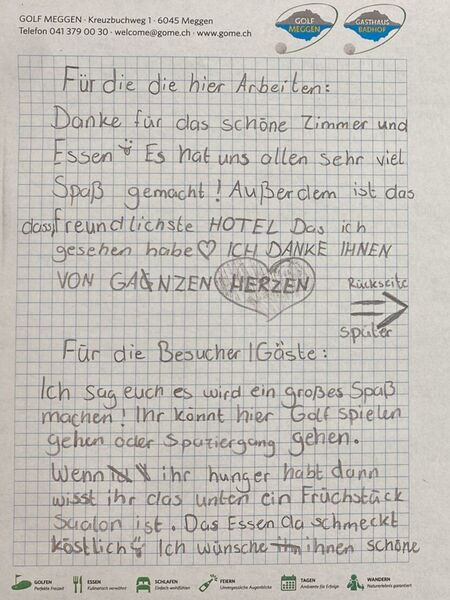 GOLF MEGGEN · Kreuzbuchweg 1 · 6045 Meggen
Telefon 041 379 00 30 · welcome@gome.ch · www.gome.ch
GOLF MEGGEN
GASTHAUS BADHOF
Für die die hier Arbeiten:
Danke für das schöne Zimmer und
Essen Es hat uns allen sehr viel
Spaß gemacht! Außerdem ist das
dass freundlichste HOTEL Das ich
gesehen habe♡ ICH DANKE IHNEN
VON GANZEN HERZEN
Rückseite
später
Für die Besucher/Gäste:
Ich sag euch es wird ein großes Spaß
machen! Ihr könnt hier Golf spielen
gehen oder Spaziergang gehen.
Wenn ihr hunger habt dann
wisst ihr das unten ein Früchstück
Saalon ist. Das Essen da schmeckt
köstlich Ich wünsche ihnen schöne
GOLFEN
Perfekte Freizeit
ESSEN
Kulinarisch verwöhnt
SCHLAFEN
Einfach wohlfühlen
FEIERN
Unvergessliche Augenblicke
TAGEN
Ambiente für Erfolge
WANDERN
Naturerlebnis garantiert